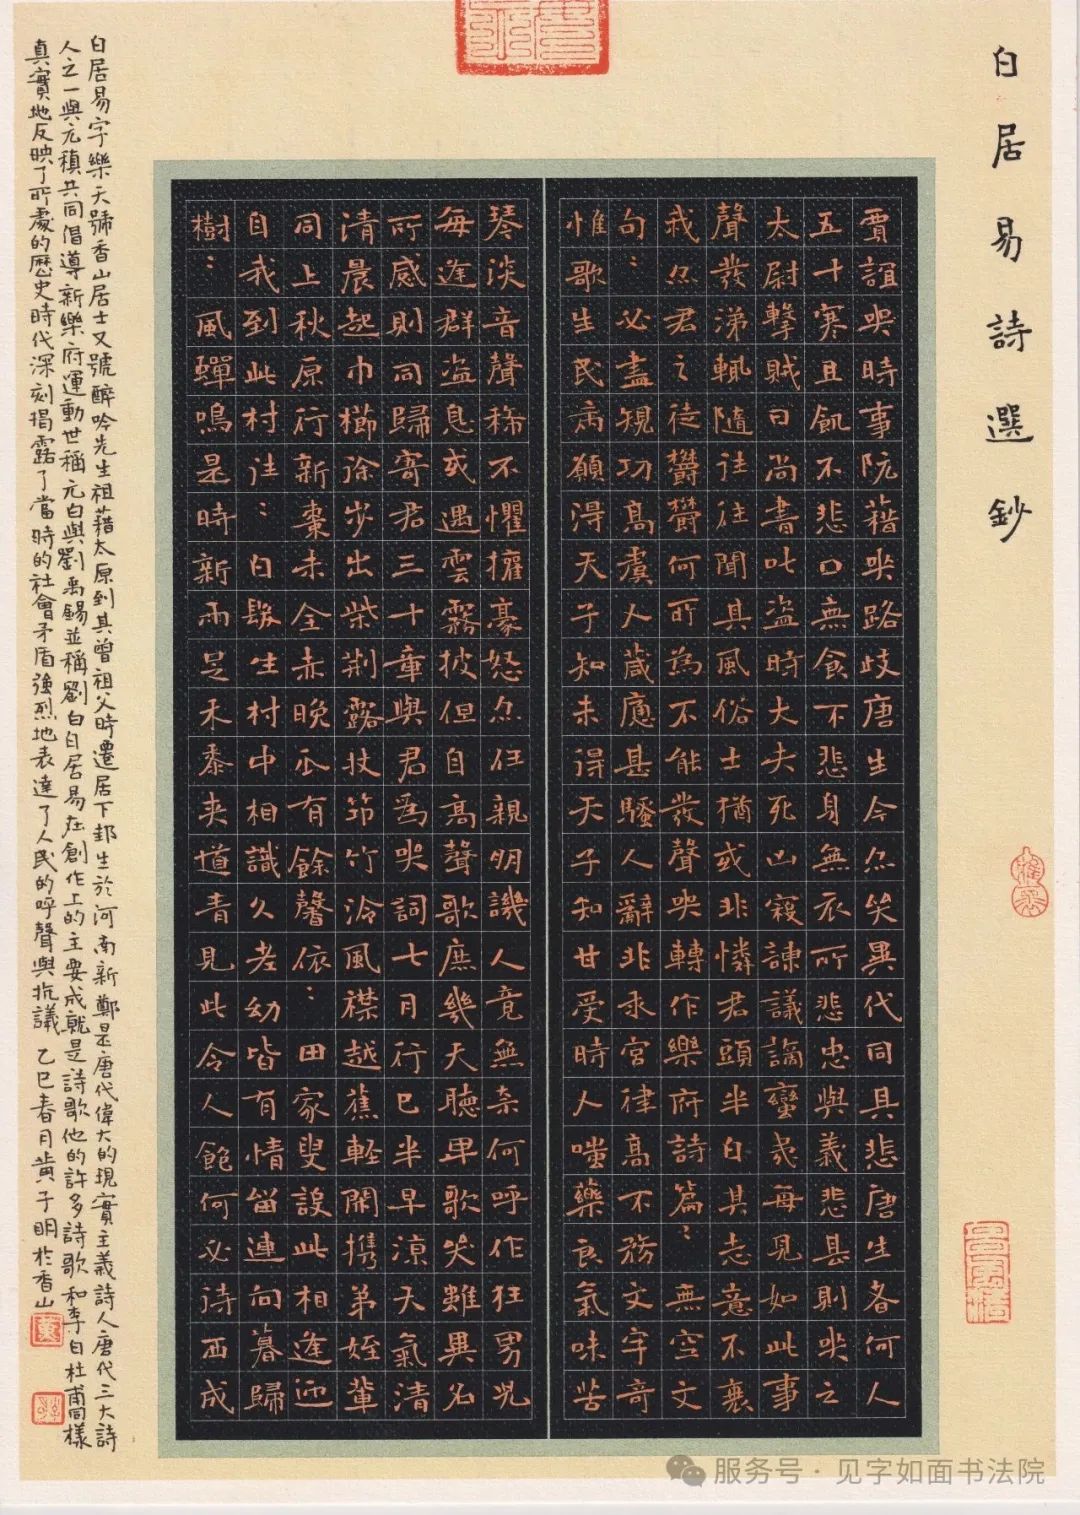 白居易詩選鈔
賈誼哭時事阮藉哭路歧唐生今亦哭異代同其悲唐生者何人
五十寒且飢不悲口無食不悲身無衣所悲忠與義悲甚則哭之
太尉擊賊日尚書叱盜時大夫死凶寇諫議謫蠻夷每見如此事
聲發涕輒隨往往聞其風俗士猶或非憐君頭半白其志竟不衰
我亦君之徒鬱鬱何所為不能發聲哭轉作樂府詩篇：無空文
句：必盡規功高虞人箴應甚騷人辭非求宮律高不務文字奇
惟歌生民病願得天子知未得天子知甘受時人嗤藥良氣味苦
琴淡音聲稀不懼權豪怒亦任親朋譏人竟無奈何呼作狂男兒
每逢群盜息或遇雲霧披但自高聲歌庶幾天聽卑歌哭雖異名
所感則同歸寄君三十章與君為哭詞七月行已半早涼天氣清
清晨起巾櫛徐步出柴荊露杖筇竹冷風襟越蕉輕閑攜弟姪輩
同上秋原行新棗未全赤晚瓜有餘馨依：田家叟設此相逢迎
自我到此村往：白髮生村中相識久老幼皆有情留連向暮歸
樹：風蟬鳴是時新雨足禾黍夾道青見此令人飽何必待西成
白居易字樂天號香山居士又號醉吟先生祖藉太原到其曾祖父時遷居下邽生於河南新鄭是唐代偉大的現實主義詩人唐代三大詩
人之一與元稹共同倡導新樂府運動世稱元白與劉禹錫並稱劉白白居易在創作上的主要成就是詩歌他的許多詩歌和李白杜甫同樣
真實地反映了所處的歷史時代深刻揭露了當時的社會矛盾強烈地表達了人民的呼聲與抗議 乙巳春月黃子明於香山
服务号·见字如面书法院